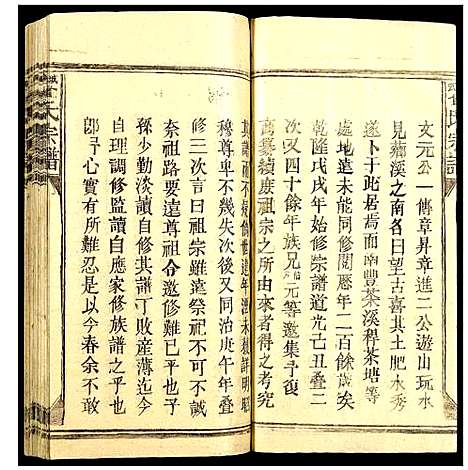 文元公一傳章昇章進二公遊山玩水
見薌溪之南名曰望古喜其土肥水秀
遂卜于此居焉而南豐茶溪稗茶塘等
處地遠未能同修閱歷年二百餘歲矣
乾隆戊戌年始修宗譜道光己丑疊二
次又四十餘年族兄元等邀集予復
高纂續庶祖宗之所由來者得之考究
其
穆尊卑不幾失次後又同治庚午年疊
修二次言曰祖宗雖遠祭祀不可不誠
奈祖路要遠尊祖令邀修難已乎也不可
孫少勤淡讀自修其譜丁敗産薄迄今
自理調修監讀自應家修族譜之乎出
郎予心實有所難忍是以今春余不敢
氏宗譜